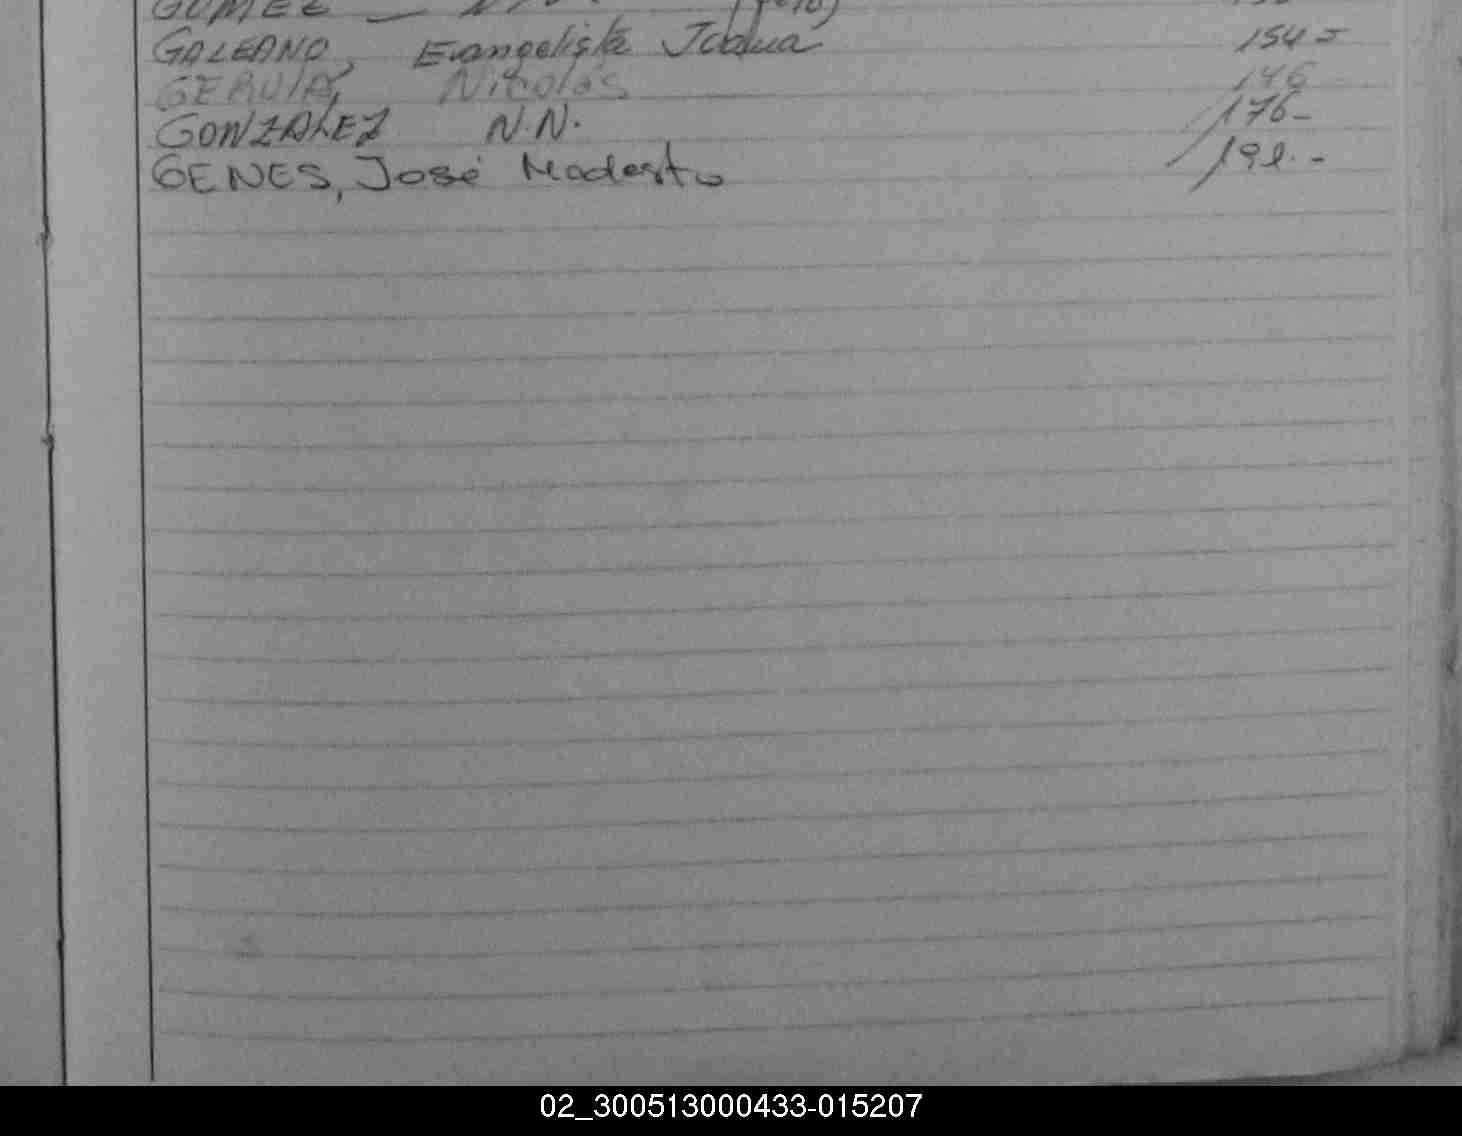 GOMEZ — N.N. (feto)
GALEANO, Evangelista Juana 154 =
GERVIA, Nicolas 146
GONZALEZ N.N. 176-
GENES, José Modesto 191.-
02_300513000433-015207